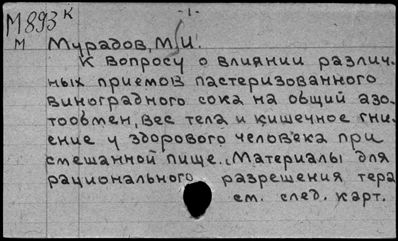 М893 К
- 1 -
М Мурадов, М. И.
К вопросу о влиянии различ-
ных приемов пастеризованного
виноградного сока на общий азо-
тообмен, вес тела и кишечное гни-
ение у здорового человека при
смешанной пище. „Материалы для
рационального разрешения тера
см. след. карт.